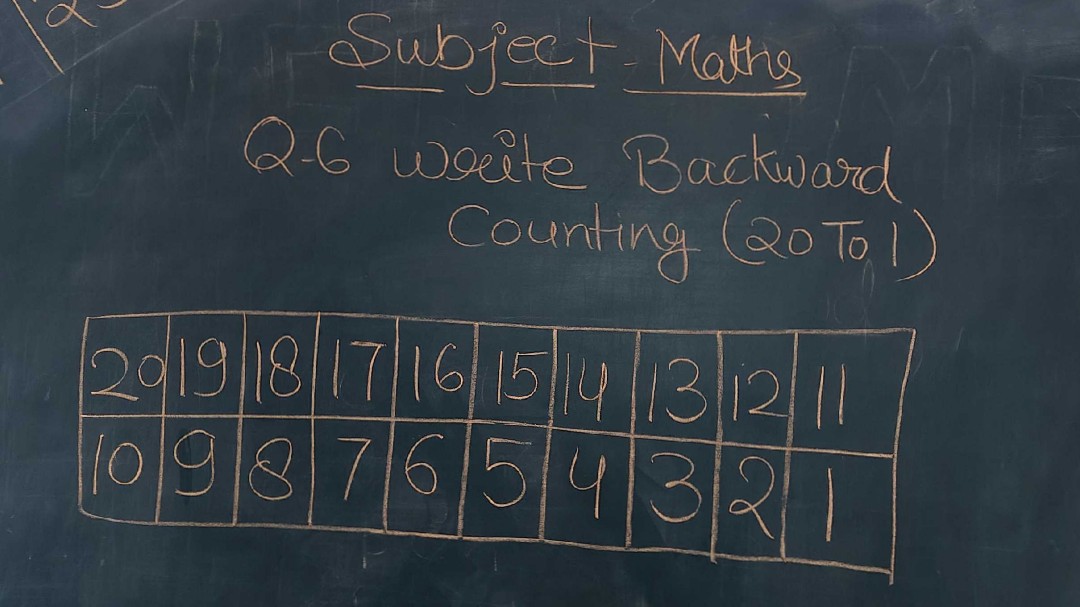 Subject - Maths
Q-6 Write Backward
Counting (20 To 1)
20 19 18 17 16 15 14 13 12 11
10 9 8 7 6 5 4 3 2 1